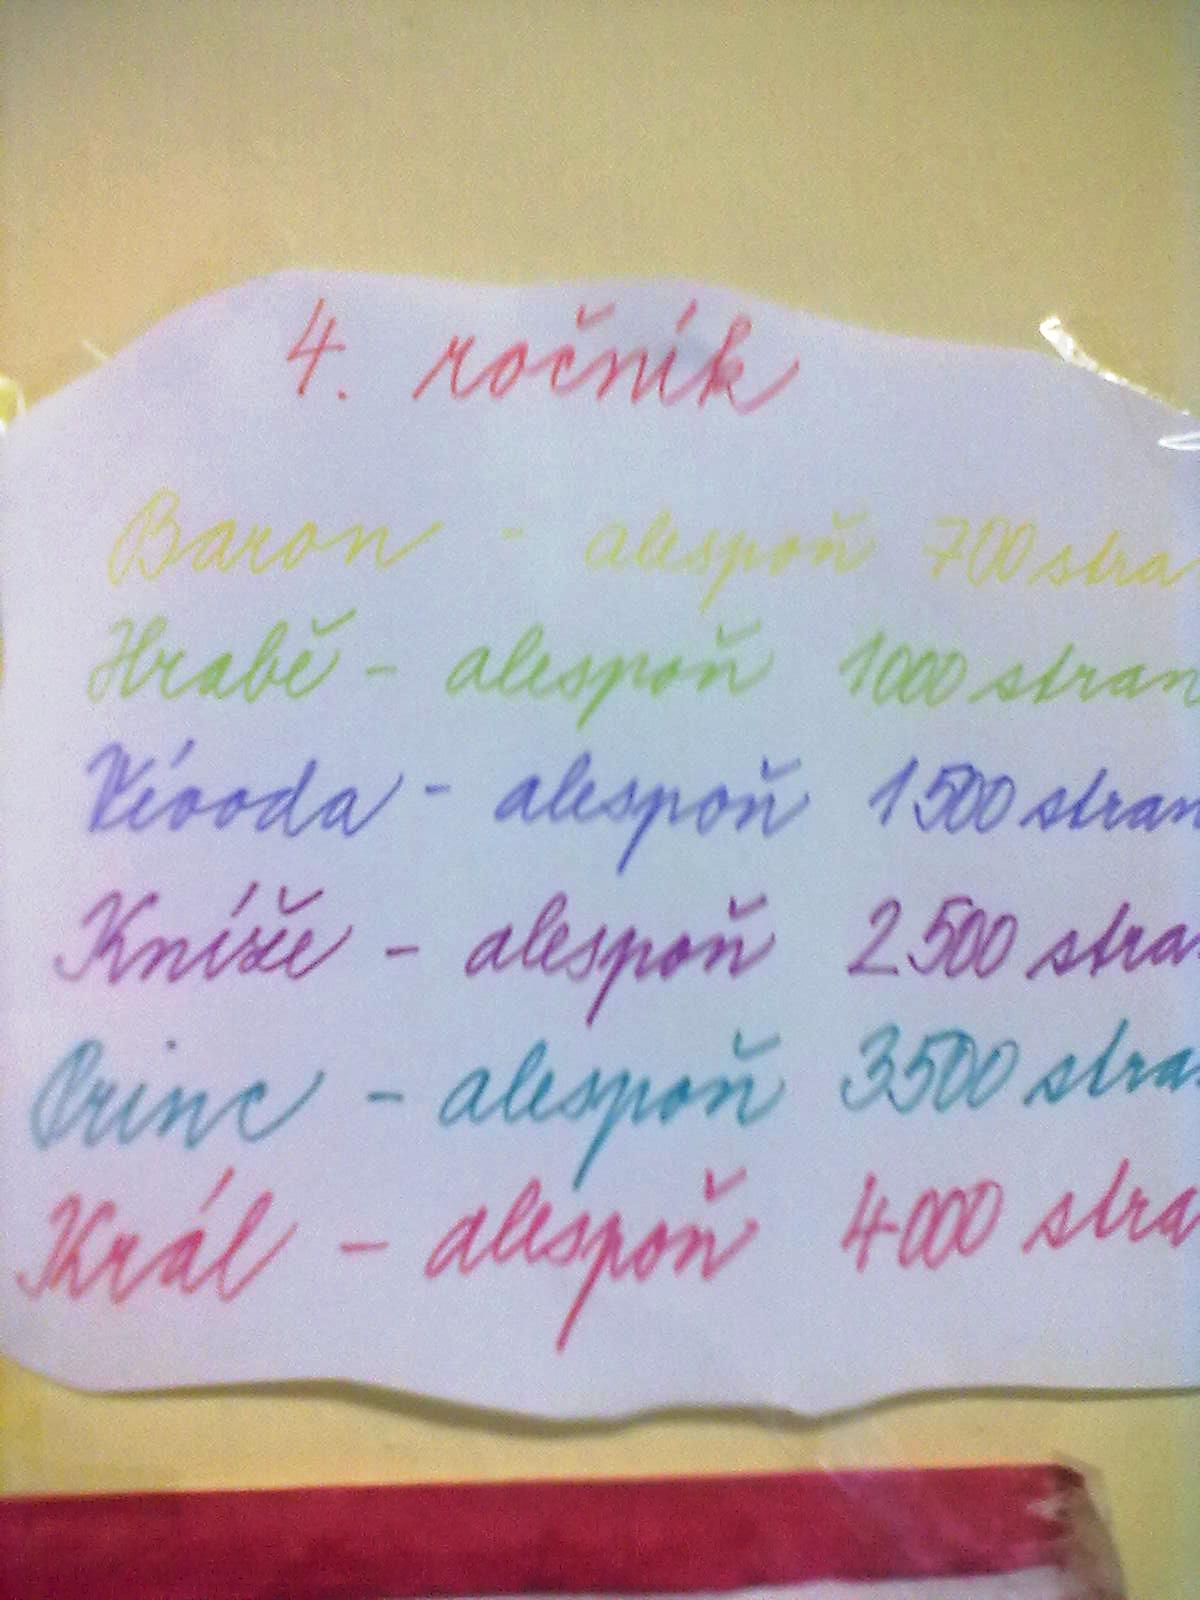 4. ročník
Baron - alespoň 700 stra
Hrabě - alespoň 1000 stran
Vévoda - alespoň 1500 stran
Kníže - alespoň 2500 stra
Princ - alespoň 3500 stra
Král - alespoň 4000 stra